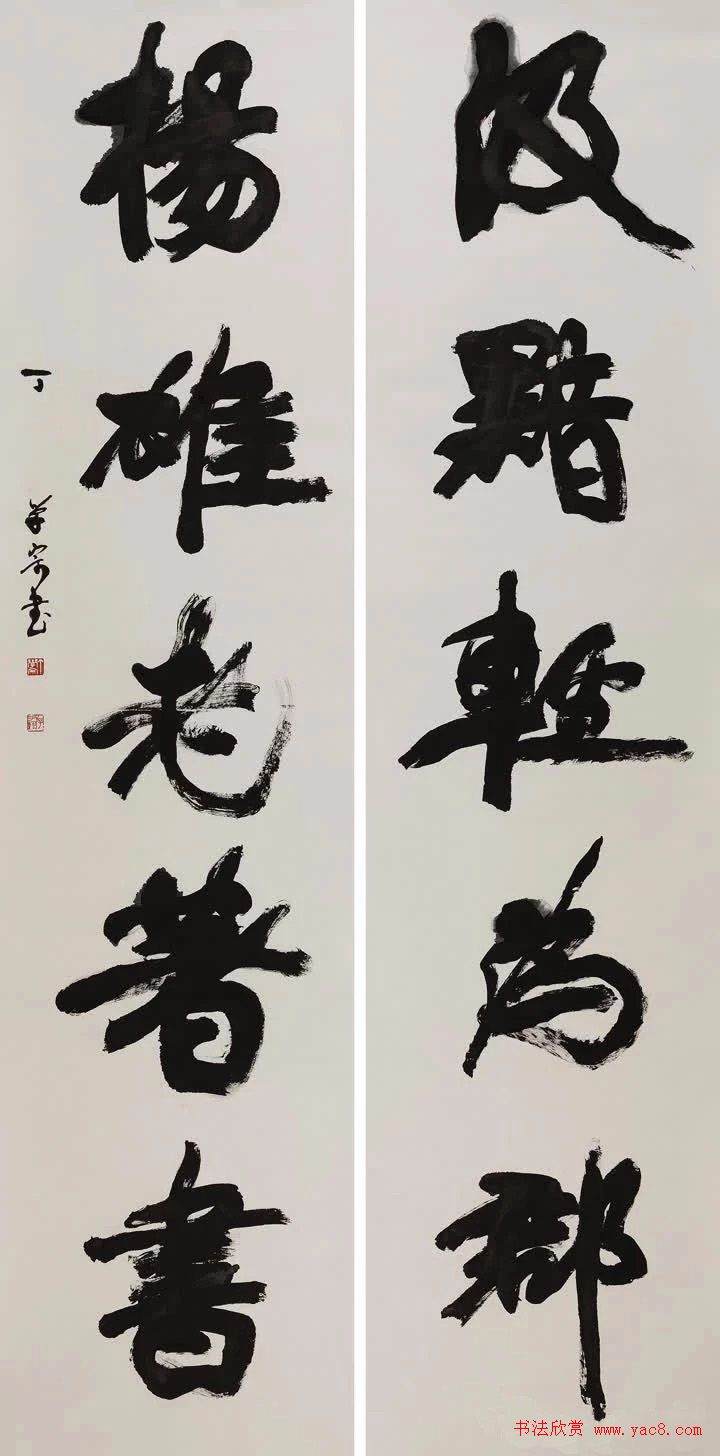 汲黯輕為郡
楊雄老著書
丁 书
书法欣赏 www.yac8.com